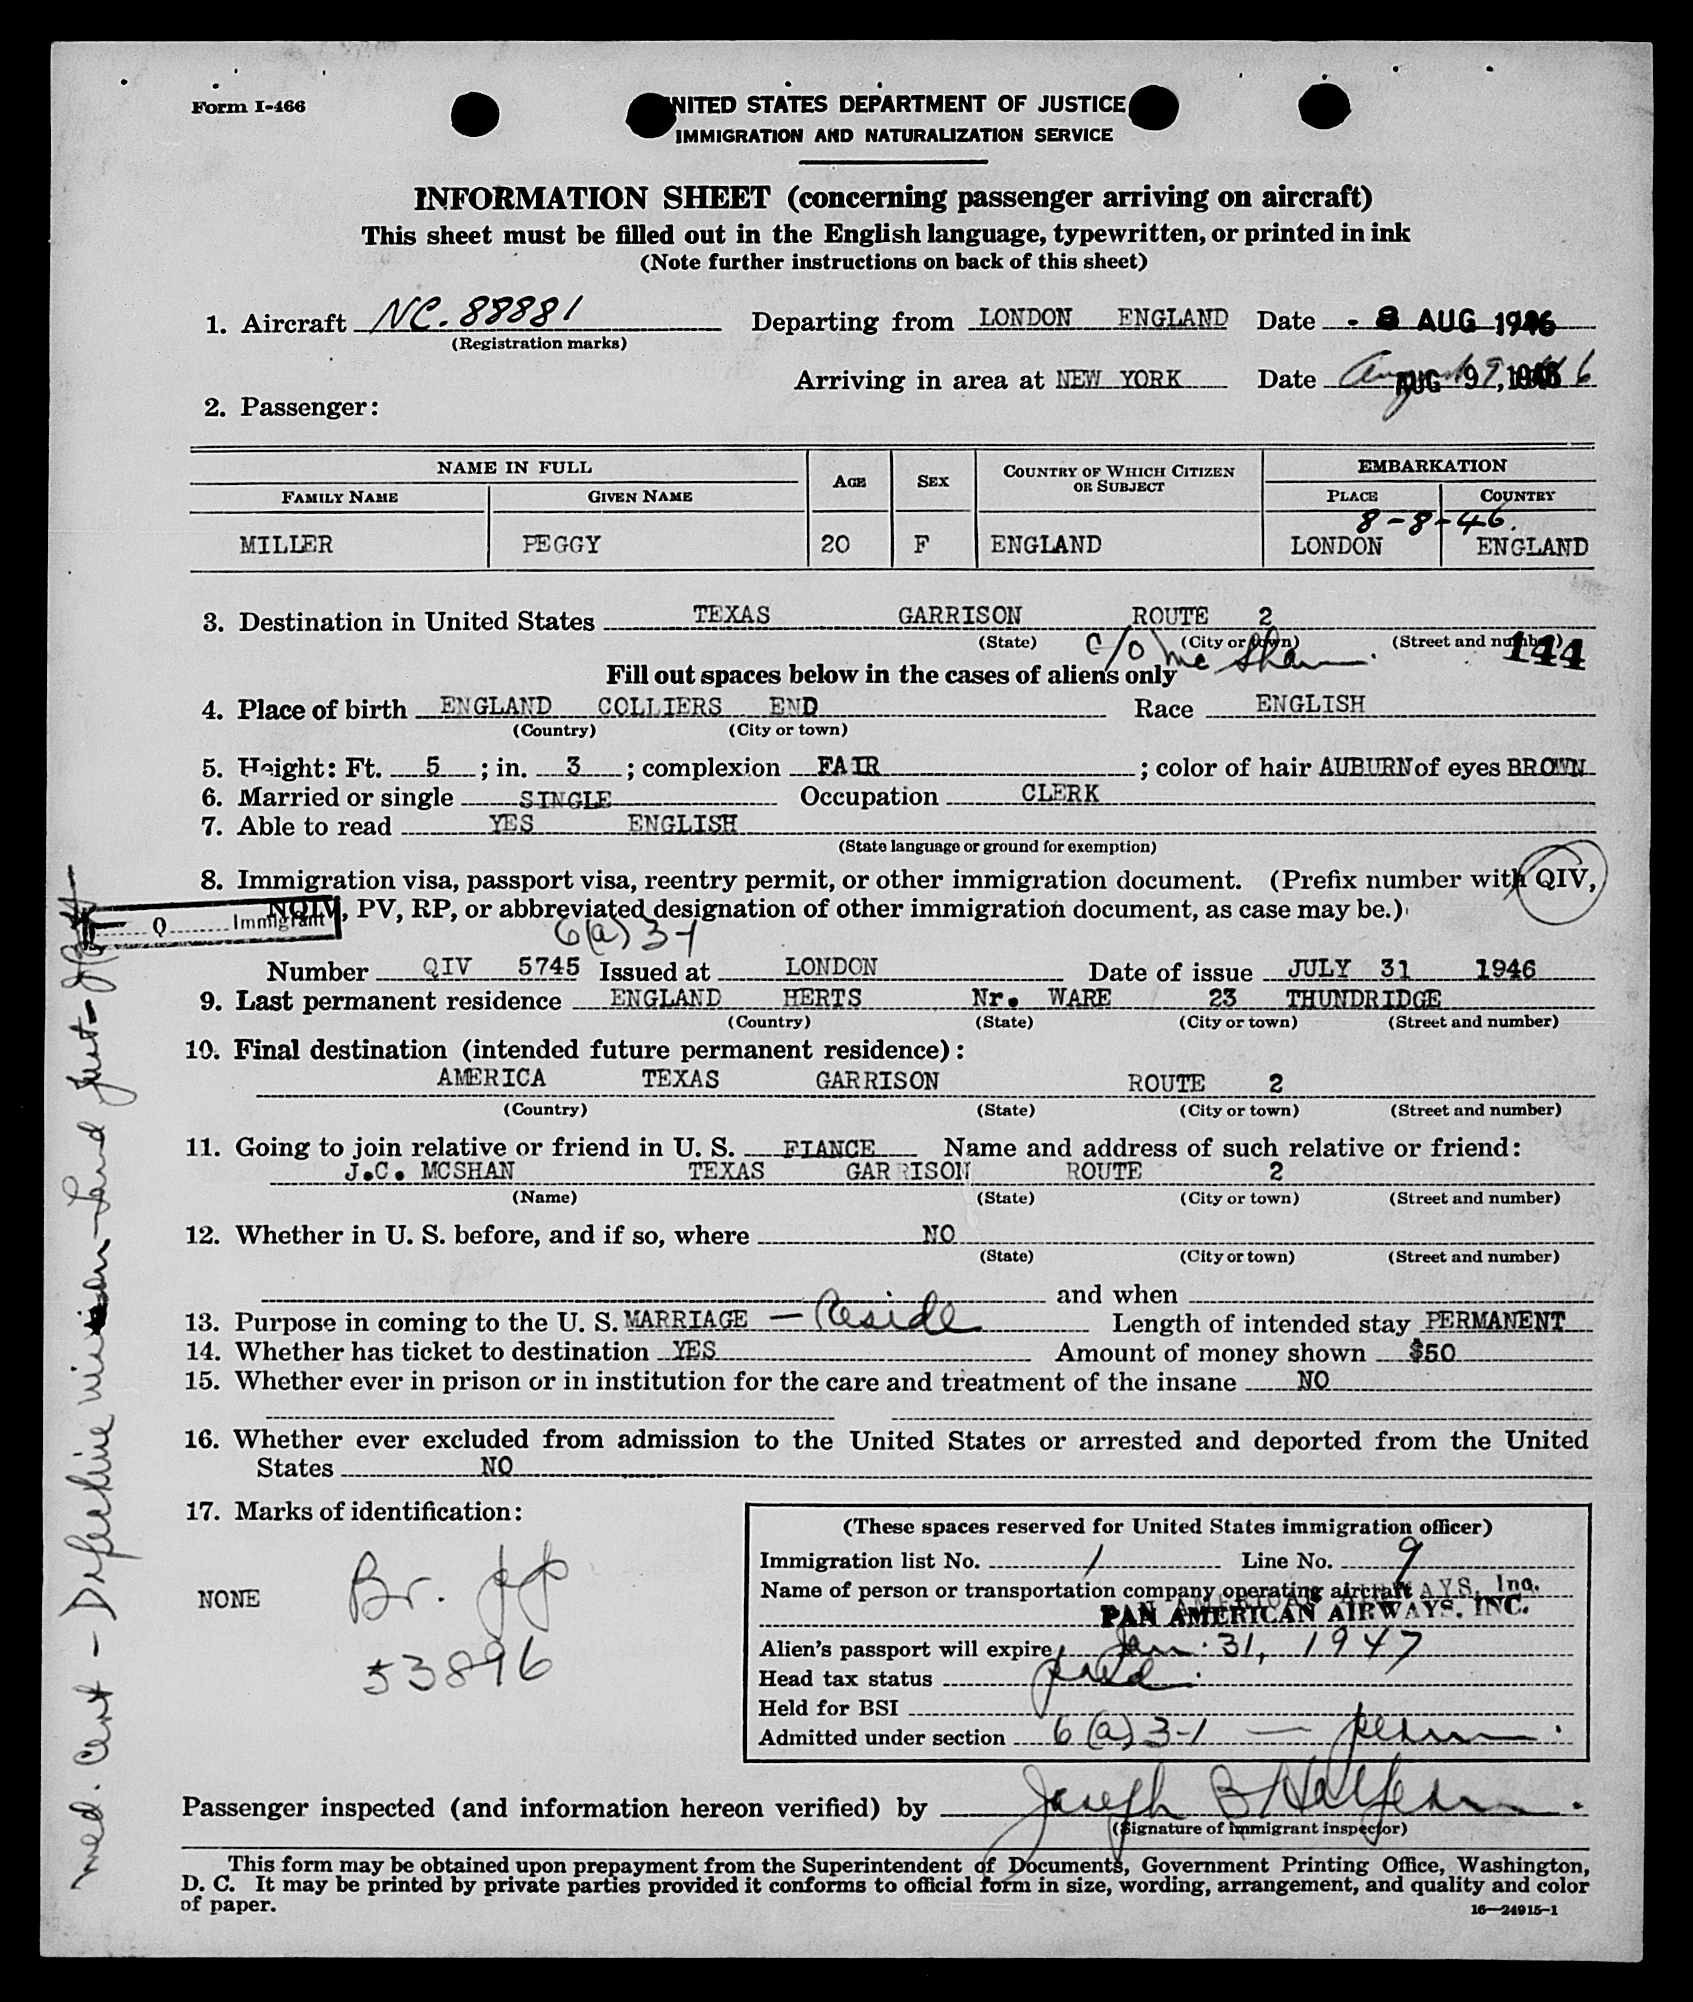 Form I-466
UNITED STATES DEPARTMENT OF JUSTICE
IMMIGRATION AND NATURALIZATION SERVICE
INFORMATION SHEET (concerning passenger arriving on aircraft)
This sheet must be filled out in the English language, typewritten, or printed in ink
(Note further instructions on back of this sheet)
1. Aircraft NC. 88881 Departing from LONDON ENGLAND Date - 8 AUG 1946
(Registration marks)
Arriving in area at NEW YORK Date AUG 9, 1946
2. Passenger:
NAME IN FULL AGE SEX COUNTRY OF WHICH CITIZEN OR SUBJECT EMBARKATION
FAMILY NAME GIVEN NAME PLACE COUNTRY
8-8-46.
MILLER PEGGY 20 F ENGLAND LONDON ENGLAND
3. Destination in United States TEXAS GARRISON ROUTE 2
(State) (City or town) (Street and number)
c/o McShan. 144
Fill out spaces below in the cases of aliens only
4. Place of birth ENGLAND COLLIERS END Race ENGLISH
(Country) (City or town)
5. Height: Ft. 5; in. 3; complexion FAIR; color of hair AUBURN of eyes BROWN
6. Married or single SINGLE Occupation CLERK
7. Able to read YES ENGLISH
(State language or ground for exemption)
8. Immigration visa, passport visa, reentry permit, or other immigration document. (Prefix number with QIV,
NQIV, PV, RP, or abbreviated designation of other immigration document, as case may be.)
Q Immigrant
6(a)3-1
Number QIV 5745 Issued at LONDON Date of issue JULY 31 1946
9. Last permanent residence ENGLAND HERTS Nr. WARE 23 THUNDRIDGE
(Country) (State) (City or town) (Street and number)
10. Final destination (intended future permanent residence):
AMERICA TEXAS GARRISON ROUTE 2
(Country) (State) (City or town) (Street and number)
11. Going to join relative or friend in U. S. FIANCE Name and address of such relative or friend:
J.C. MCSHAN TEXAS GARRISON ROUTE 2
(Name) (State) (City or town) (Street and number)
12. Whether in U. S. before, and if so, where NO
(State) (City or town) (Street and number)
and when
13. Purpose in coming to the U. S. MARRIAGE — Reside Length of intended stay PERMANENT
14. Whether has ticket to destination YES Amount of money shown $50
15. Whether ever in prison or in institution for the care and treatment of the insane NO
16. Whether ever excluded from admission to the United States or arrested and deported from the United
States NO
17. Marks of identification:
NONE
Br.
53896
(These spaces reserved for United States immigration officer)
Immigration list No. 1 Line No. 9
Name of person or transportation company operating aircraft
PAN AMERICAN AIRWAYS, INC.
Alien's passport will expire Jan. 31, 1947
Head tax status paid.
Held for BSI
Admitted under section 6(a)3-1 — perm.
Passenger inspected (and information hereon verified) by Joseph B Halpern
(Signature of immigrant inspector)
This form may be obtained upon prepayment from the Superintendent of Documents, Government Printing Office, Washington,
D. C. It may be printed by private parties provided it conforms to official form in size, wording, arrangement, and quality and color
of paper.
16—24915-1
Med. Cert - Defective vision